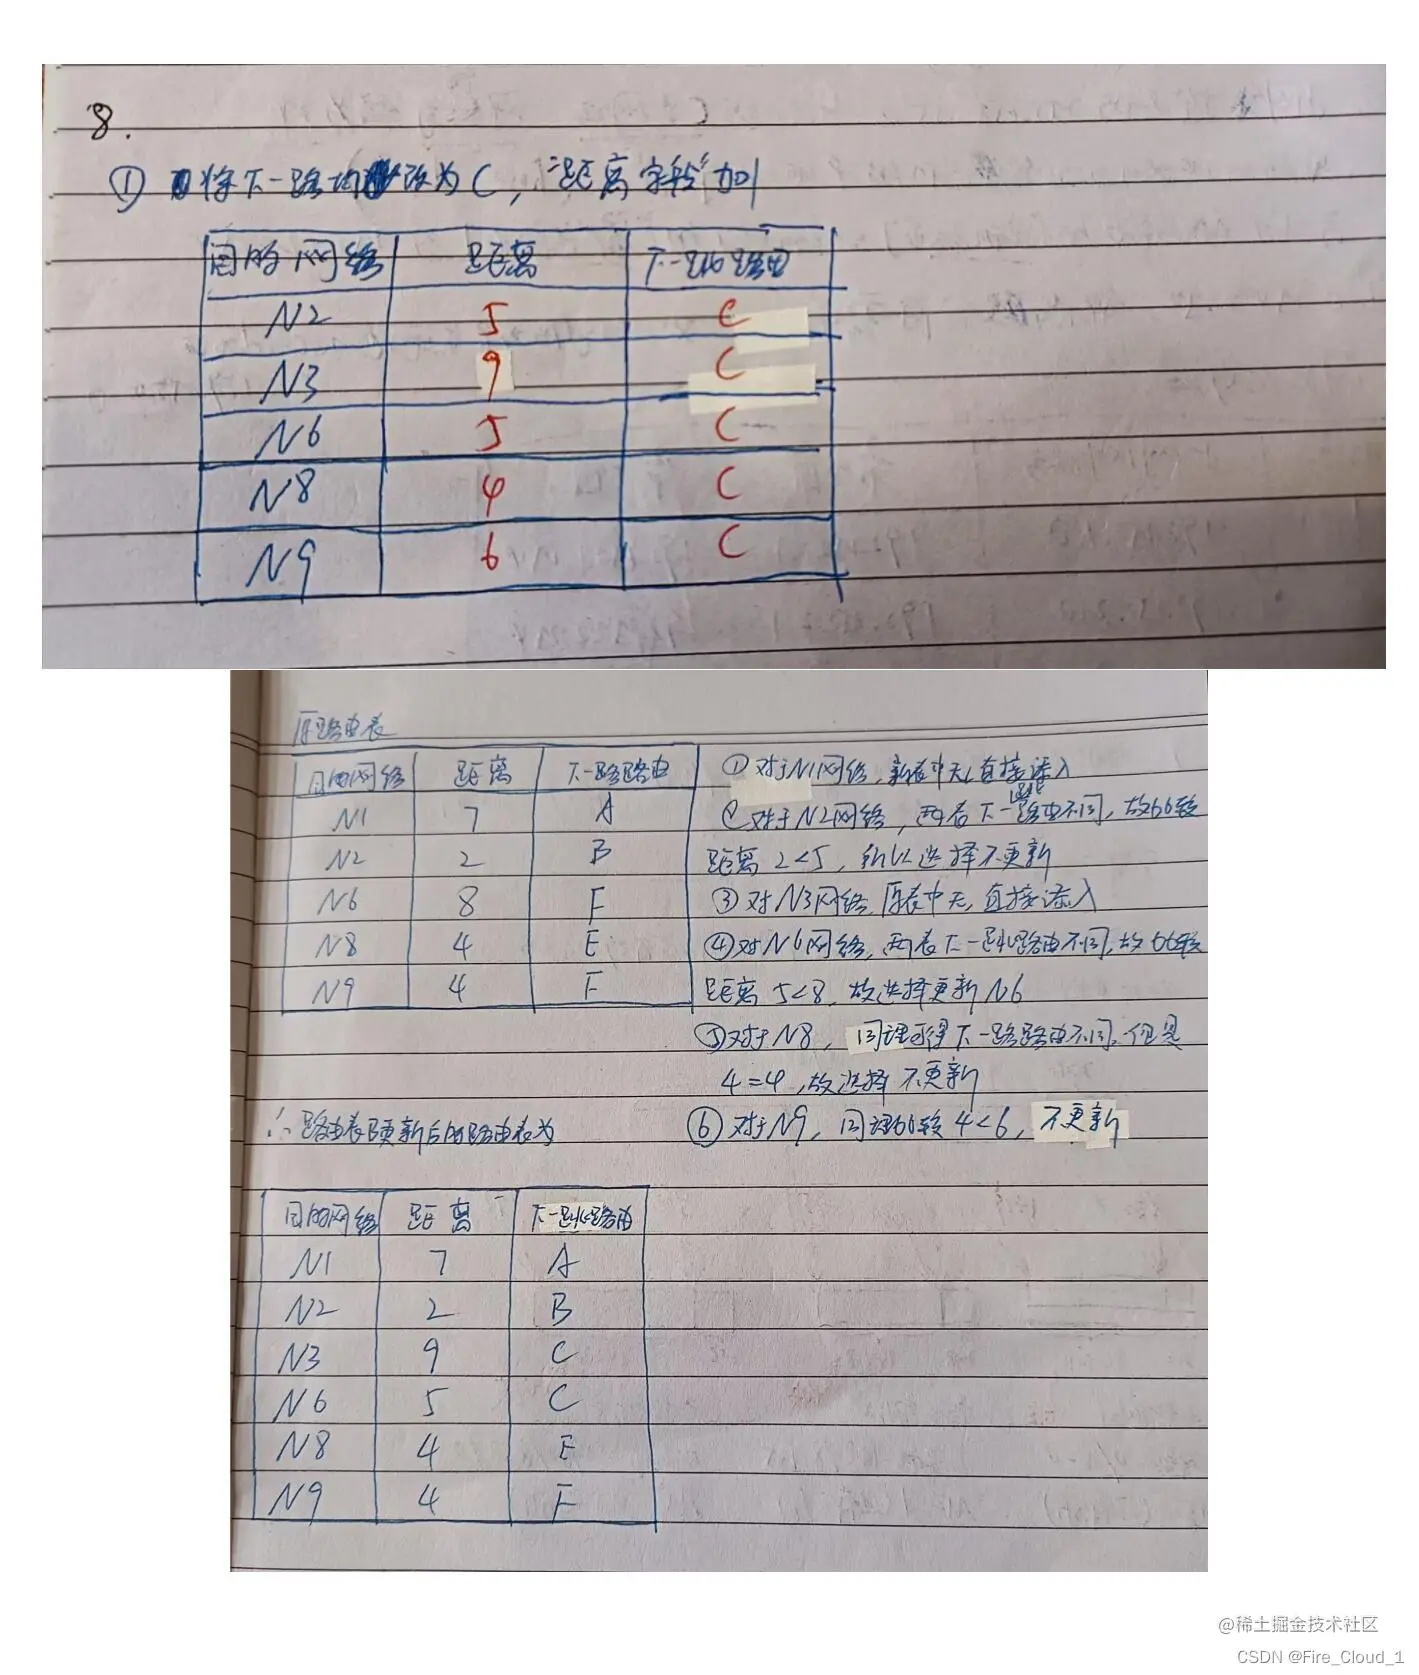 8.
① 将下一路均改为C，"距离字段"加1
目的网络 距离 下一跳路由
N2 5 C
N3 9 C
N6 5 C
N8 4 C
N9 6 C
原路由表
目的网络 距离 下一路路由
N1 7 A
N2 2 B
N6 8 F
N8 4 E
N9 4 F
①对于N1网络，新表中无，直接添入
②对于N2网络，两者下一跳路由不同，故比较
距离 2<5，所以选择不更新
③对N3网络，原表中无，直接添入
④对N6网络，两表下一跳路由不同，故比较
距离 5<8，故选择更新N6
⑤对于N8，同理可得下一路路由不同，但是
4=4，故选择不更新
⑥对于N9，同理比较4<6，不更新
∴路由表更新后的路由表为
目的网络 距离 下一跳路由
N1 7 A
N2 2 B
N3 9 C
N6 5 C
N8 4 E
N9 4 F
@稀土掘金技术社区
CSDN @Fire_Cloud_1